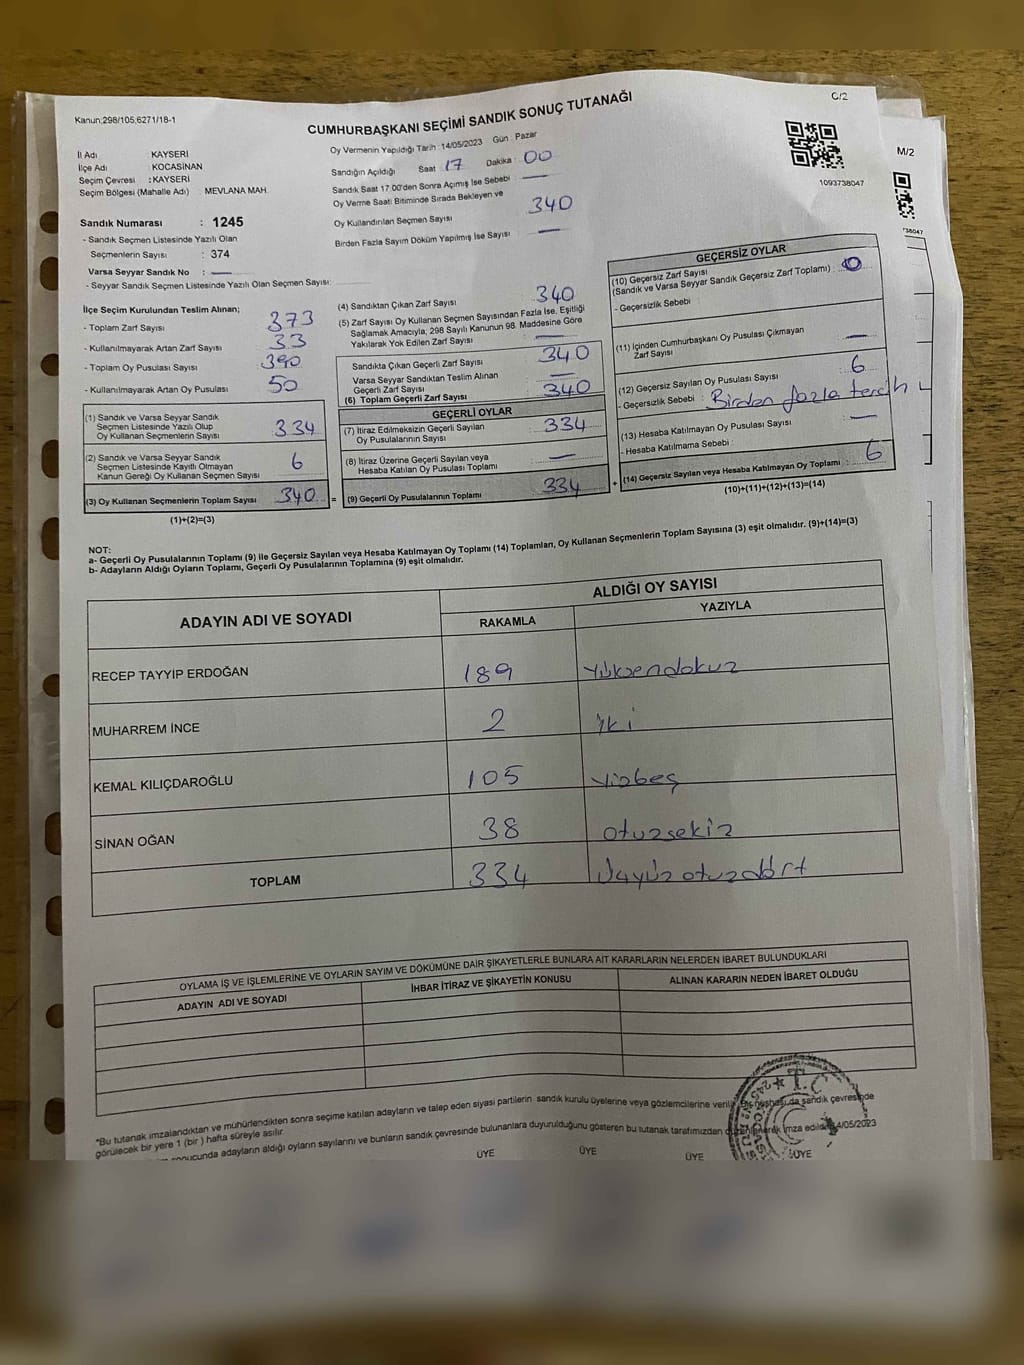 Kanun;298/105,6271/18-1
C/2
CUMHURBAŞKANI SEÇİMİ SANDIK SONUÇ TUTANAĞI
İl Adı KAYSERİ
İlçe Adı : KOCASİNAN
Seçim Çevresi : KAYSERİ
Seçim Bölgesi (Mahalle Adı) : MEVLANA MAH.
Oy Vermenin Yapıldığı Tarih : 14/05/2023 Gün : Pazar
Sandığın Açıldığı Saat : 17 Dakika : 00
Sandık Saat 17.00'den Sonra Açımış İse Sebebi : —
Oy Verme Saati Bitiminde Sırada Bekleyen ve
Oy Kullandırılan Seçmen Sayısı 340
Birden Fazla Sayım Döküm Yapılmış İse Sayısı : —
1093738047
M/2
38047
Sandık Numarası : 1245
- Sandık Seçmen Listesinde Yazılı Olan
Seçmenlerin Sayısı : 374
Varsa Seyyar Sandık No : —
- Seyyar Sandık Seçmen Listesinde Yazılı Olan Seçmen Sayısı:
İlçe Seçim Kurulundan Teslim Alınan;
- Toplam Zarf Sayısı 373
- Kullanılmayarak Artan Zarf Sayısı 33
- Toplam Oy Pusulası Sayısı 390
- Kullanılmayarak Artan Oy Pusulası 50
(1) Sandık ve Varsa Seyyar Sandık
Seçmen Listesinde Yazılı Olup
Oy Kullanan Seçmenlerin Sayısı 334
(2) Sandık ve Varsa Seyyar Sandık
Seçmen Listesinde Kayıtlı Olmayan
Kanun Gereği Oy Kullanan Seçmen Sayısı 6
(3) Oy Kullanan Seçmenlerin Toplam Sayısı 340 =
(1)+(2)=(3)
(4) Sandıktan Çıkan Zarf Sayısı 340
(5) Zarf Sayısı Oy Kullanan Seçmen Sayısından Fazla İse, Eşitliği
Sağlamak Amacıyla, 298 Sayılı Kanunun 98. Maddesine Göre
Yakılarak Yok Edilen Zarf Sayısı —
Sandıkta Çıkan Geçerli Zarf Sayısı 340
Varsa Seyyar Sandıktan Teslim Alınan
Geçerli Zarf Sayısı : —
(6) Toplam Geçerli Zarf Sayısı 340
GEÇERLİ OYLAR
(7) İtiraz Edilmeksizin Geçerli Sayılan
Oy Pusulasının Sayısı 334
(8) İtiraz Üzerine Geçerli Sayılan veya
Hesaba Katılan Oy Pusulası Toplamı —
(9) Geçerli Oy Pusulalarının Toplamı 334 +
GEÇERSİZ OYLAR
(10) Geçersiz Zarf Sayısı
(Sandık ve Varsa Seyyar Sandık Geçersiz Zarf Toplamı) : 0
- Geçersizlik Sebebi :
(11) İçinden Cumhurbaşkanı Oy Pusulası Çıkmayan
Zarf Sayısı —
(12) Geçersiz Sayılan Oy Pusulası Sayısı 6
- Geçersizlik Sebebi : Birden fazla tercih
(13) Hesaba Katılmayan Oy Pusulası Sayısı —
- Hesaba Katılmama Sebebi :
(14) Geçersiz Sayılan veya Hesaba Katılmayan Oy Toplamı : 6
(10)+(11)+(12)+(13)=(14)
NOT:
a- Geçerli Oy Pusulalarının Toplamı (9) ile Geçersiz Sayılan veya Hesaba Katılmayan Oy Toplamı (14) Toplamları, Oy Kullanan Seçmenlerin Toplam Sayısına (3) eşit olmalıdır. (9)+(14)=(3)
b- Adayların Aldığı Oyların Toplamı, Geçerli Oy Pusulalarının Toplamına (9) eşit olmalıdır.
ADAYIN ADI VE SOYADI ALDIĞI OY SAYISI
RAKAMLA YAZIYLA
RECEP TAYYİP ERDOĞAN 189 Yüksendokuz
MUHARREM İNCE 2 iki
KEMAL KILIÇDAROĞLU 105 Yüzbeş
SİNAN OĞAN 38 otuzsekiz
TOPLAM 334 Üçyüzotuzdört
OYLAMA İŞ VE İŞLEMLERİNE VE OYLARIN SAYIM VE DÖKÜMÜNE DAİR ŞİKAYETLERLE BUNLARA AİT KARARLARIN NELERDEN İBARET BULUNDUKLARI
ADAYIN ADI VE SOYADI İHBAR İTİRAZ VE ŞİKAYETİN KONUSU ALINAN KARARIN NEDEN İBARET OLDUĞU
T.C
*Bu tutanak imzalandıktan ve mühürlendikten sonra seçime katılan adayların ve talep eden siyasi partilerin sandık kurulu üyelerine veya gözlemcilerine verilir. Bir nüshası da sandık çevresinde
görülecek bir yere 1 (bir) hafta süreyle asılır.
sonucunda adayların aldığı oyların sayılarını ve bunların sandık çevresinde bulunanlara duyurulduğunu gösteren bu tutanak tarafımızdan düzenlenerek imza edildi. 14/05/2023
ÜYE ÜYE ÜYE ÜYE